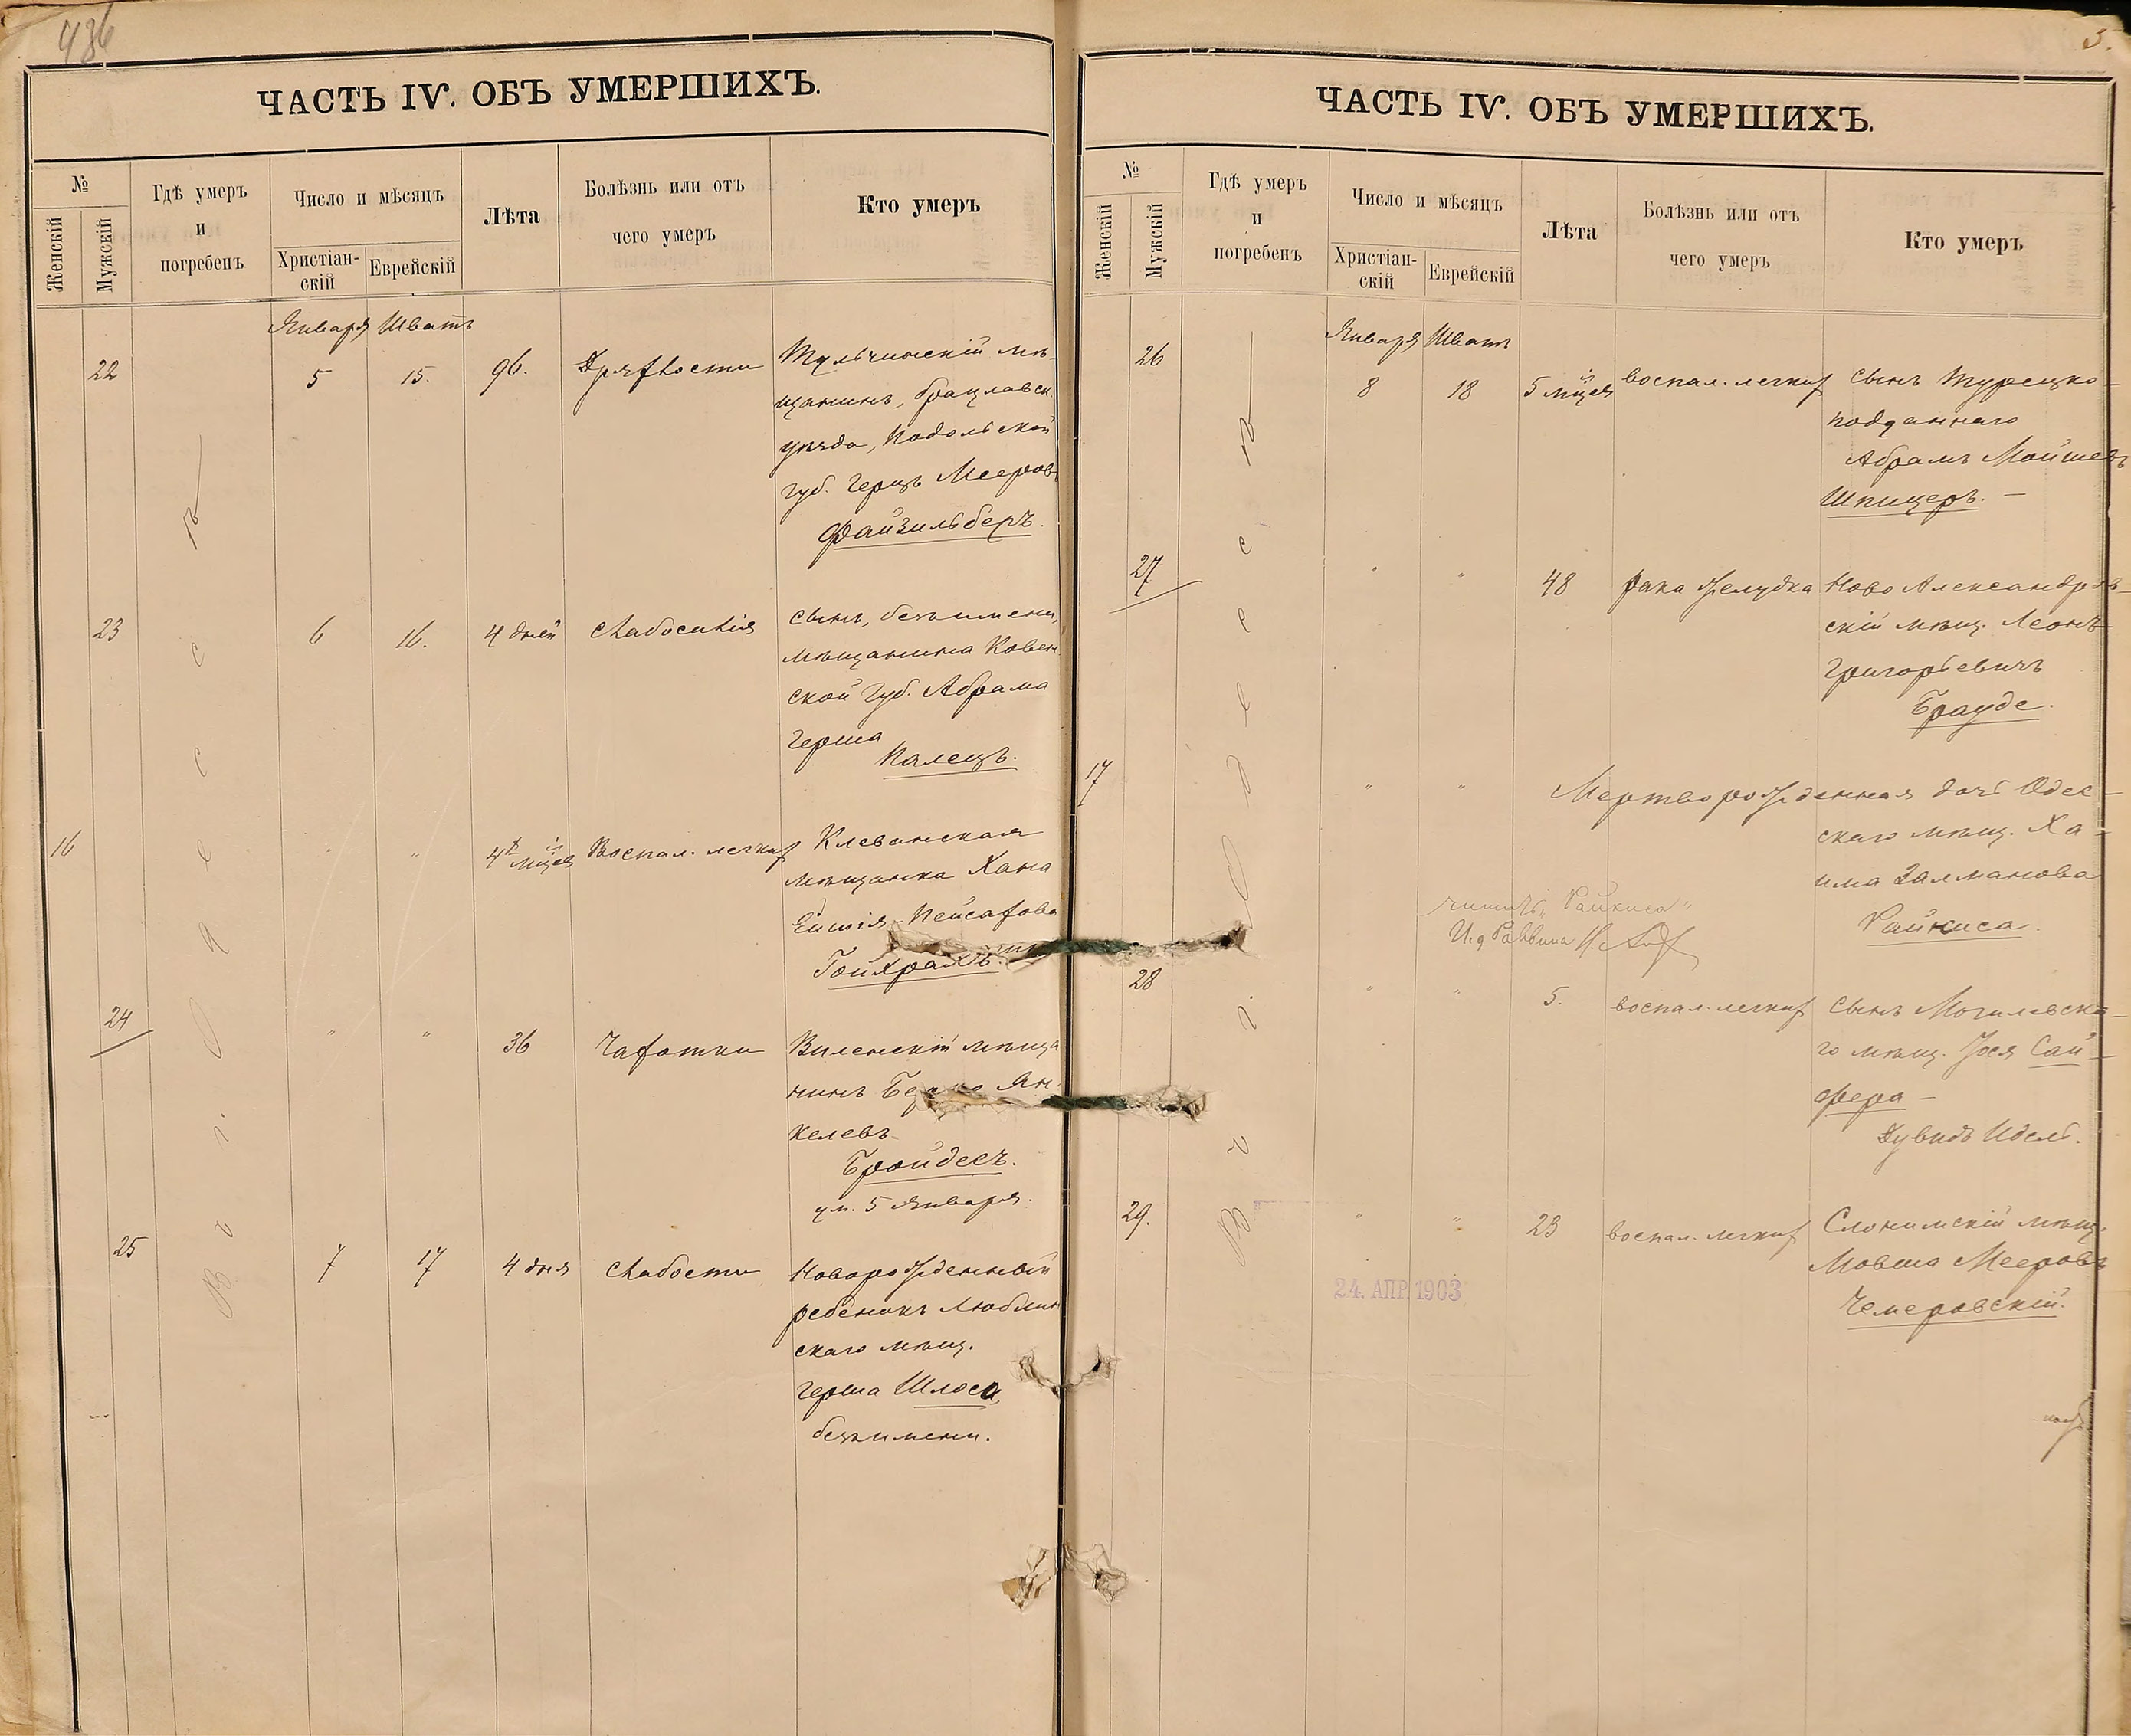 436
ЧАСТЬ IV. ОБЪ УМЕРШИХЪ.
№
Женскій
Мужскій
Гдѣ умеръ
и
погребенъ
Число и мѣсяцъ
Христіан-
скій
Еврейскій
Лѣта
Болѣзнь или отъ
чего умеръ
Кто умеръ
Января Шватъ
22 5 15. 96. Дряхлости Тульчинскій мѣ-
щанинъ, Брацлавск.
уѣзда, Подольской
губ. Герцъ Мееровъ
Файзильберъ.
23 6 16. 4 дней Слабосилія Сынъ, безъ имени,
мѣщанина Ковен
ской губ. Абрама
Герша
Калецъ.
16 " " 4х мцевъ Воспал. легких Клеванская
мѣщанка Хана
Пейсахова
24 " " 36 Чахотки Виленскій мѣща
нинъ Ян-
келевъ
Бройдесъ.
ум. 5 Января.
25 7 17 4 дня Слабости Новорожденный
ребенокъ Люблин
скаго мѣщ.
Герша Шлоса
безъ имени.
Въ г. Одессѣ
5.
ЧАСТЬ IV. ОБЪ УМЕРШИХЪ.
№
Женскій
Мужскій
Гдѣ умеръ
и
погребенъ
Число и мѣсяцъ
Христіан-
скій
Еврейскій
Лѣта
Болѣзнь или отъ
чего умеръ
Кто умеръ
Января Шватъ
26 8 18 5 мцевъ воспал. легких Сынъ Турецко-
подданнаго
Абрамъ Мойшевъ
Шпицеръ. —
27 " " 48 рака желудка Ново Александров-
скій мѣщ. Леонъ
Григорьевичъ
Брауде.
17 " " Мертворожденная дочь Одес-
скаго мѣщ. Ха-
има Залманова
Райкиса.
читать „Райкиса"
И. д. Раввина
28 " " 5. воспал. легких Сынъ Могилевска-
го мѣщ. Іося Сай-
фера —
Дувидъ Идель.
29. " " 23 воспал. легких Слонимскій мѣщ.
Мовша Мееровъ
Чемеровскій.
24. АПР. 1903